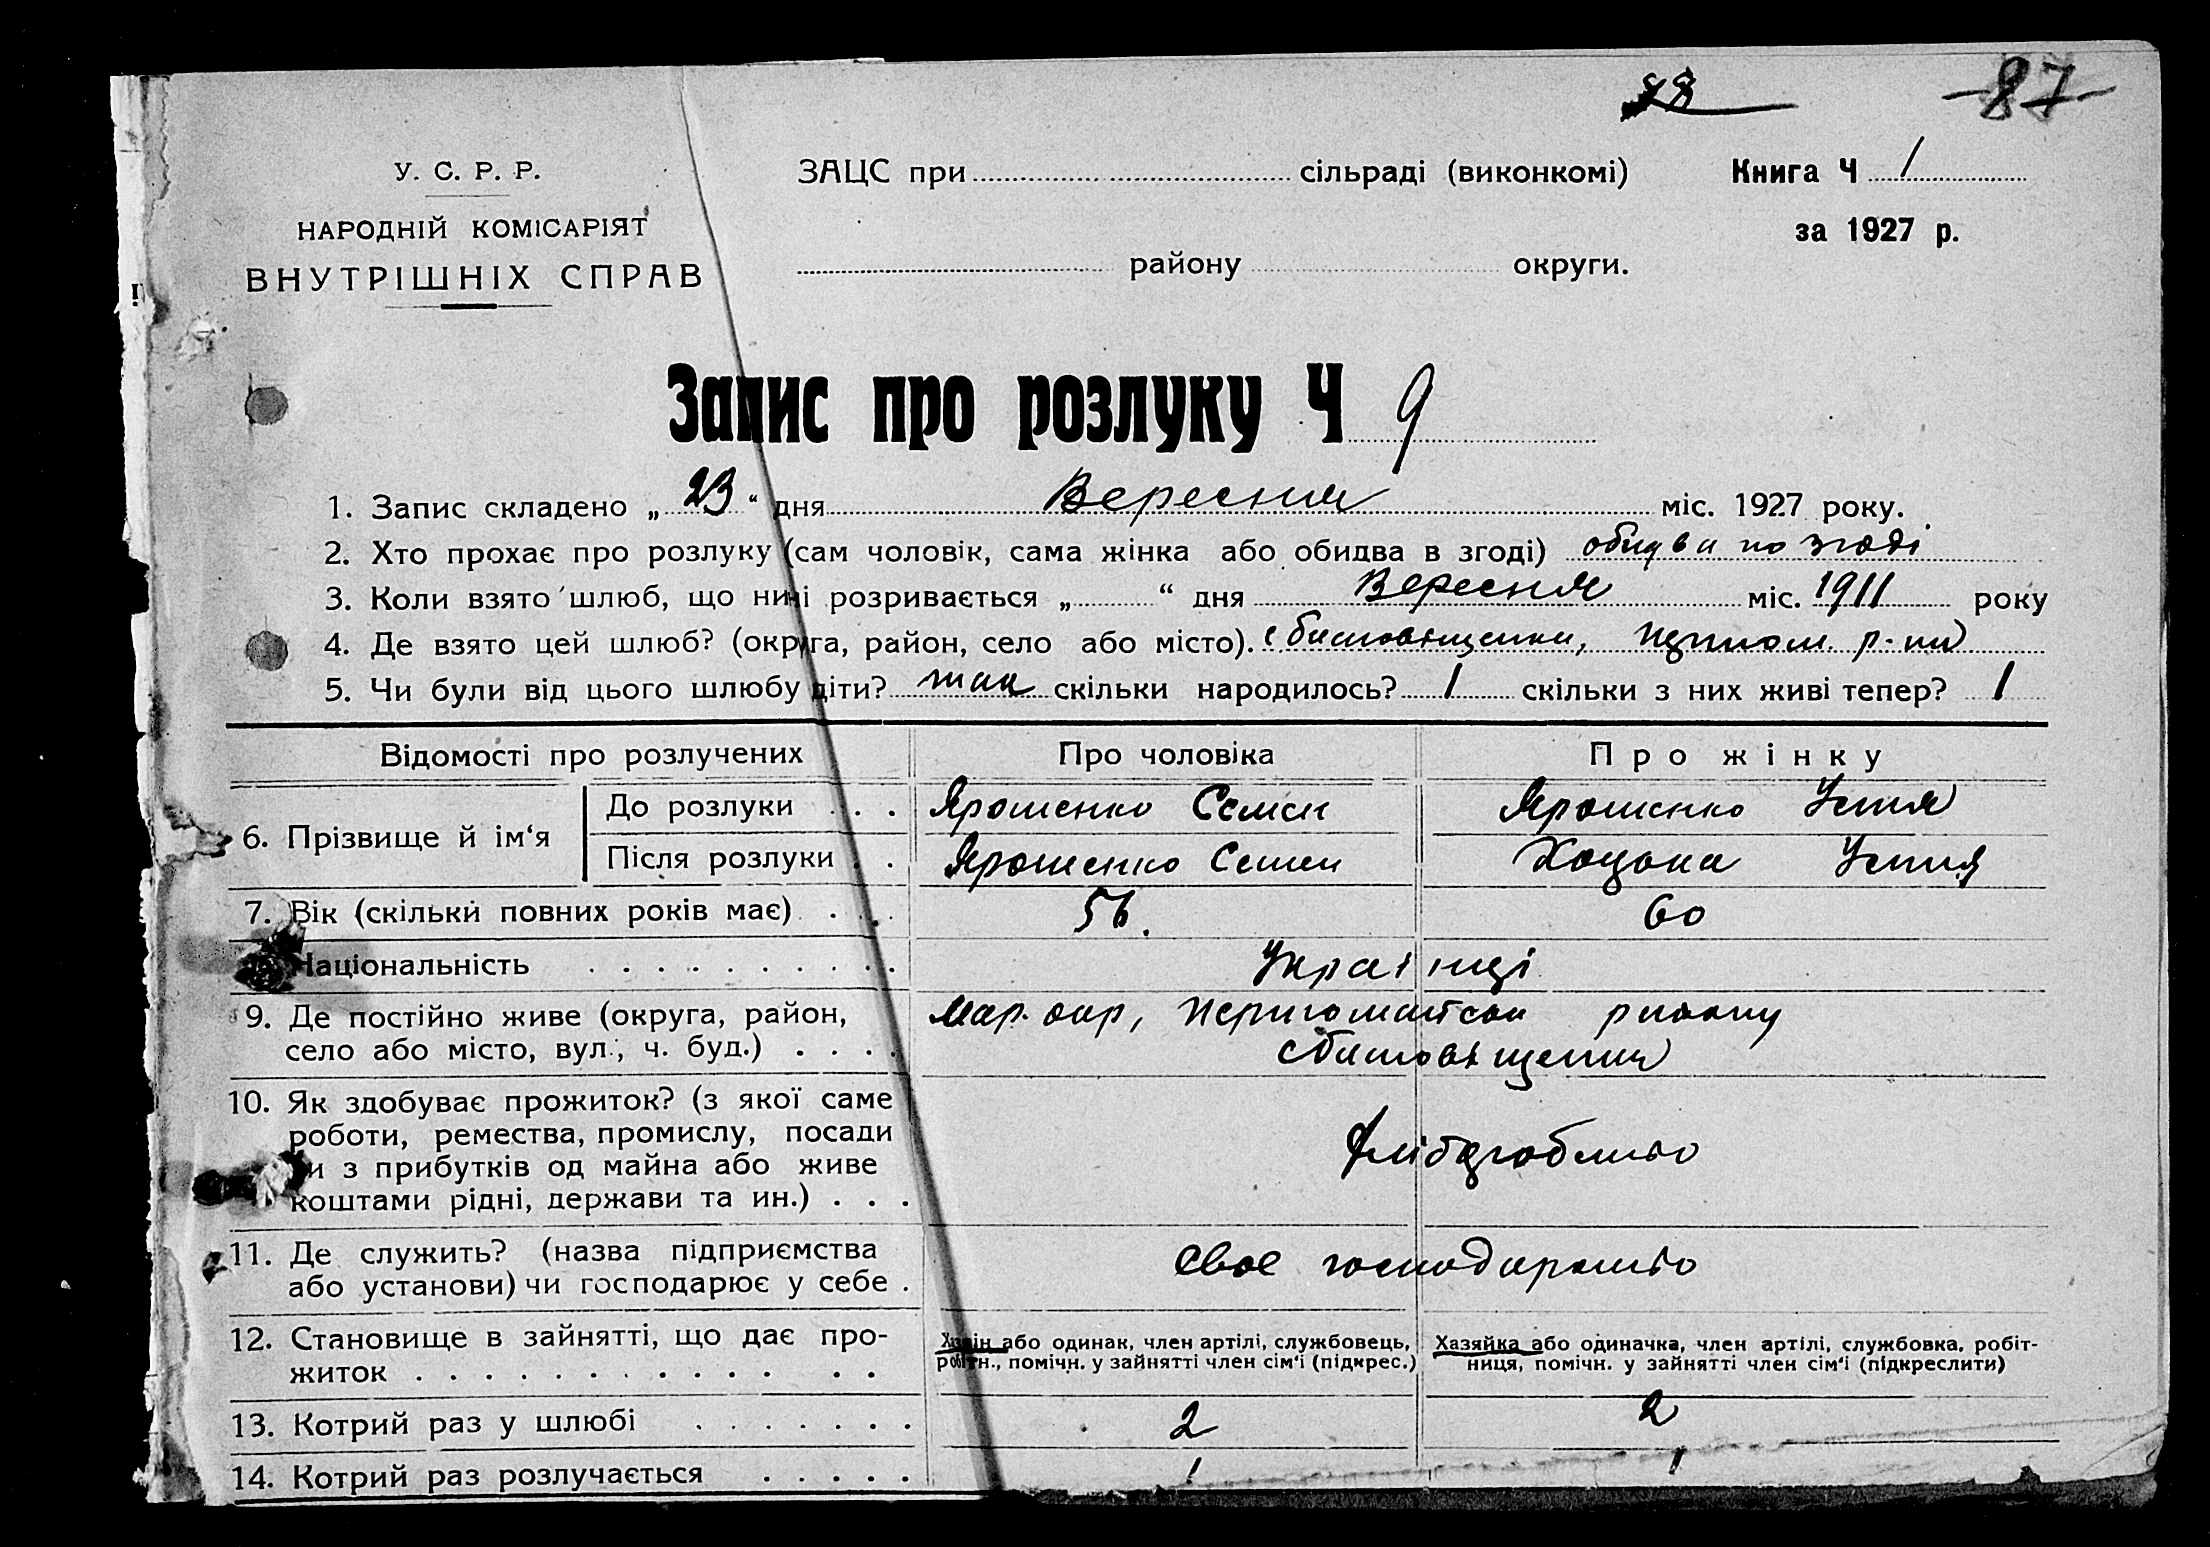 88 87
У. С. Р. Р.
НАРОДНІЙ КОМІСАРІЯТ
ВНУТРІШНІХ СПРАВ
ЗАЦС при сільраді (виконкомі)
району округи.
Книга Ч 1
за 1927 р.
Запис про розлуку Ч 9
1. Запис складено „ 23 “ дня Вересня міс. 1927 року.
2. Хто прохає про розлуку (сам чоловік, сама жінка або обидва в згоді) обидва по згоді
3. Коли взято шлюб, що нині розривається „ “ дня Вересня міс. 1911 року
4. Де взято цей шлюб? (округа, район, село або місто). р-ну
5. Чи були від цього шлюбу діти? так скільки народилось? 1 скільки з них живі тепер? 1
Відомості про розлучених Про чоловіка Про жінку
6. Прізвище й ім‘я
До розлуки . . . Ярошенко Семен Ярошенко Устя
Після розлуки . . Ярошенко Семен Коцюба Устя
7. Вік (скільки повних років має) . . . 56. 60
Національність . . . . . . . . . . . Українці
9. Де постійно живе (округа, район, Мар. окр, Першомайськ району
село або місто, вул., ч. буд.) . . . .
10. Як здобуває прожиток? (з якої саме
роботи, ремества, промислу, посади
чи з прибутків од майна або живе Хліборобство
коштами рідні, держави та ин.) . . .
11. Де служить? (назва підприємства
або установи) чи господарює у себе . своє господарство
12. Становище в зайнятті, що дає про-
житок . . . . . . . . . . . . . . .
Хазяїн або одинак, член артілі, службовець,
робітн., помічн. у зайнятті член сім‘ї (підкрес.)
Хазяйка або одиначка, член артілі, службовка, робіт-
ниця, помічн. у зайнятті член сім‘ї (підкреслити)
13. Котрий раз у шлюбі . . . . . . . 2 2
14. Котрий раз розлучається . . . . . 1 1